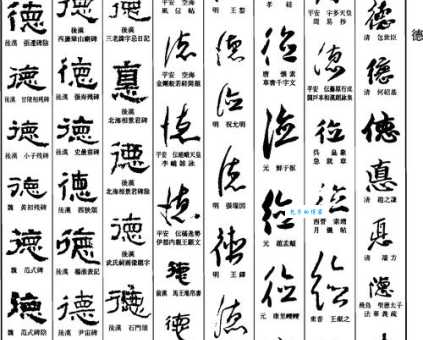 德
德
清 包世臣
德
清 何紹基
德
悳
清 趙之謙
悳
清 端方
德
飛鳥 聖德太子
法華義疏
平安 宇多天皇
周易抄
德
平安 伝藤原行成
関戸本和漢朗詠集
德
呉 皇象
急就章
德
西晋 索靖
月儀帖
德
東晋 王献之
德
唐 懐素
草書千字文
德
元 鮮于枢
德
元 趙孟頫
德
元 康里巎巎
德
德
明 祝允明
德
明 張瑞図
德
明 王鐸
德
平安 空海
風信帖
德
平安 空海
金剛般若経開題
德
平安 伝嵯峨天皇
李嶠雑詠
德
平安 伝橘逸勢
伊都内親王願文
德
前漢 馬王堆帛書
德
德
後漢 三老諱字忌日記
悳
後漢
北海相景君碑
德
後漢
北海相景君碑陰
德
後漢
武氏祠画像題字
德
後漢 石門頌
德
後漢 西嶽華山廟碑
德
後漢 張寿残碑
德
後漢 史晨碑
德
後漢 西狭頌
德
後漢 楊淮表記
德
後漢 尹宙碑
德
後漢 張遷碑陰
德
後漢 甘陵相残碑
德
後漢 小子残碑
德
魏 黄初残碑
德
魏 范式碑
德
魏 范式碑陰